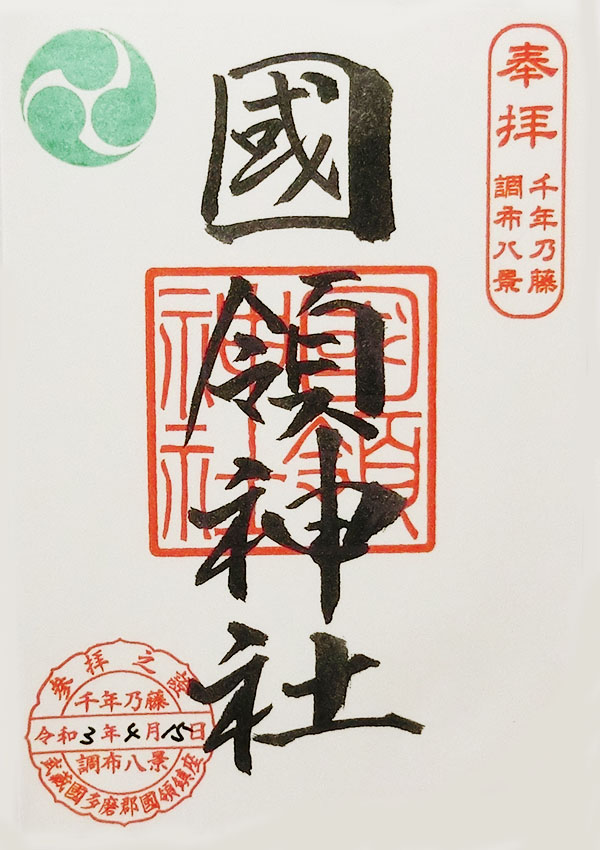 奉拝
千年乃藤
調布八景
國領神社
國領神社
参拝之證
千年乃藤
令和3年4月15日
調布八景
武蔵國多磨郡國領鎮座